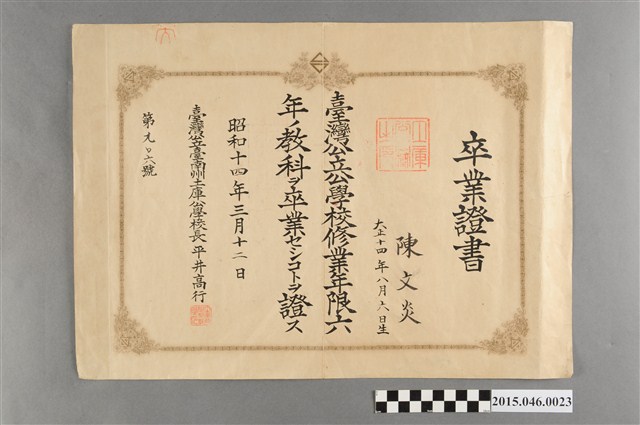 卒業證書
陳文炎
大正十四年八月六日生
臺灣公立公學校修業年限六
年ノ教科ヲ卒業セシコトヲ證ス
昭和十四年三月十二日
臺灣公立臺南州土庫公學校長平井高行
2015.046.0023